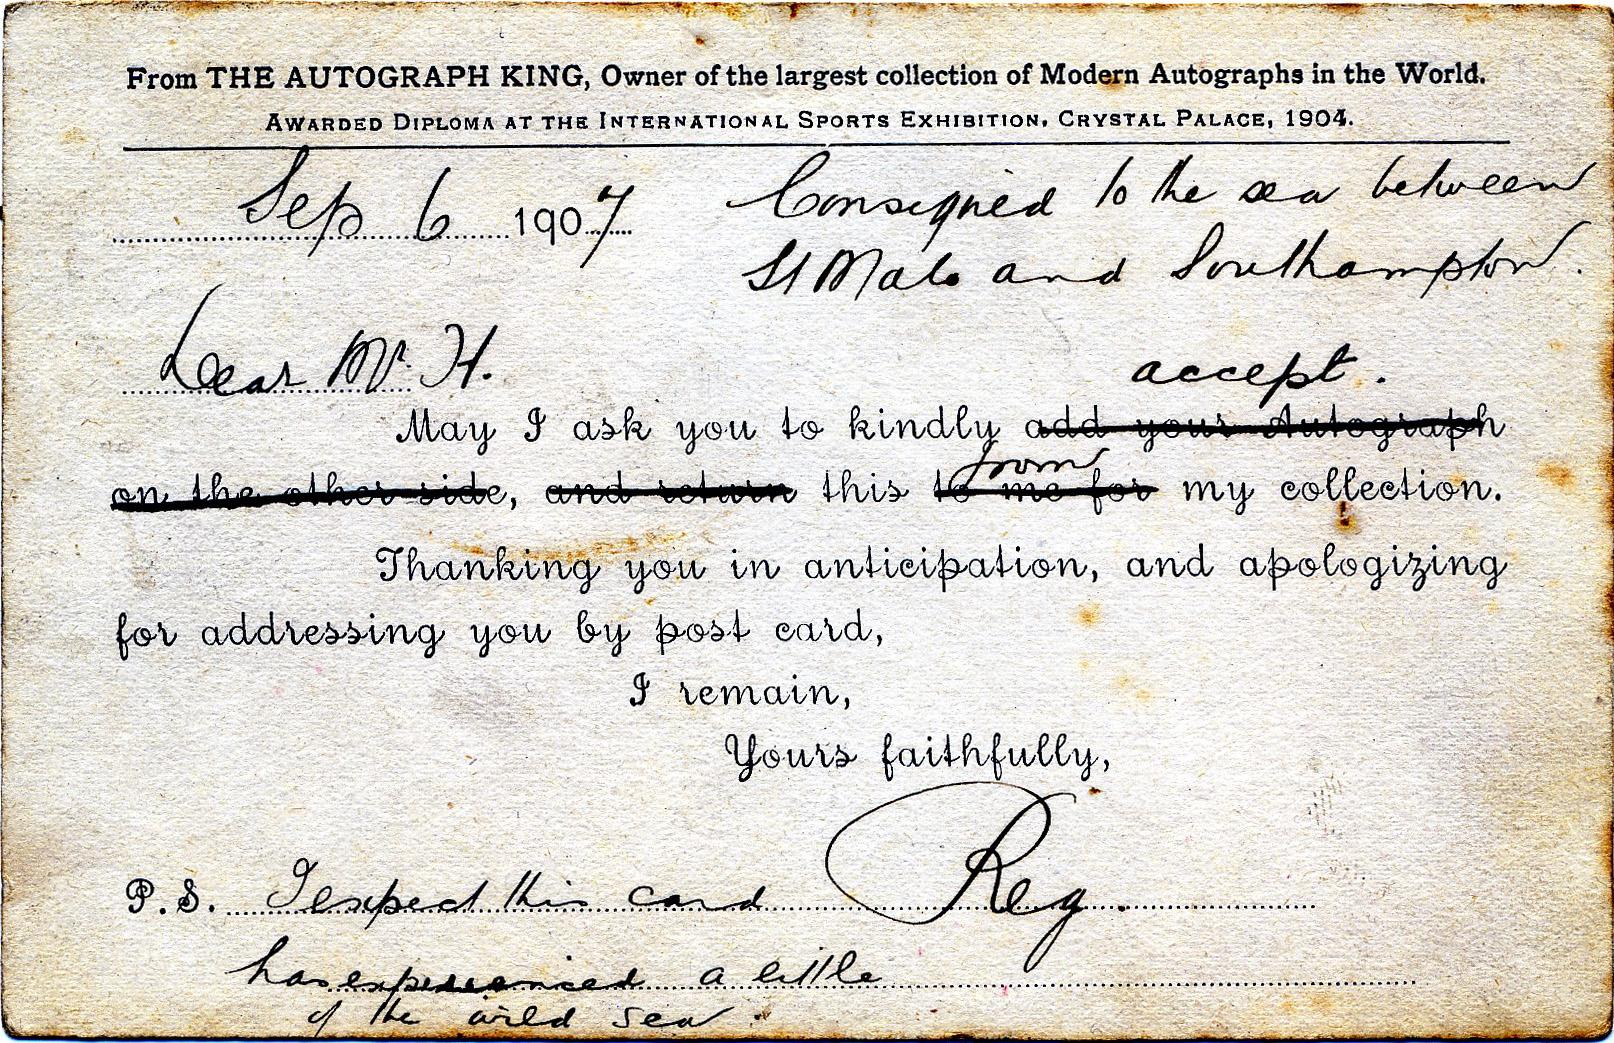 From THE AUTOGRAPH KING, Owner of the largest collection of Modern Autographs in the World.
AWARDED DIPLOMA AT THE INTERNATIONAL SPORTS EXHIBITION, CRYSTAL PALACE, 1904.
Sep 6 1907
Consigned to the sea between
St Malo and Southampton.
Dear Mr. H.
accept.
May I ask you to kindly add your Autograph
from
on the other side, and return this to me for my collection.
Thanking you in anticipation, and apologizing
for addressing you by post card,
I remain,
Yours faithfully,
Reg.
P.S. I expect this card
has experienced a little
of the wild sea.